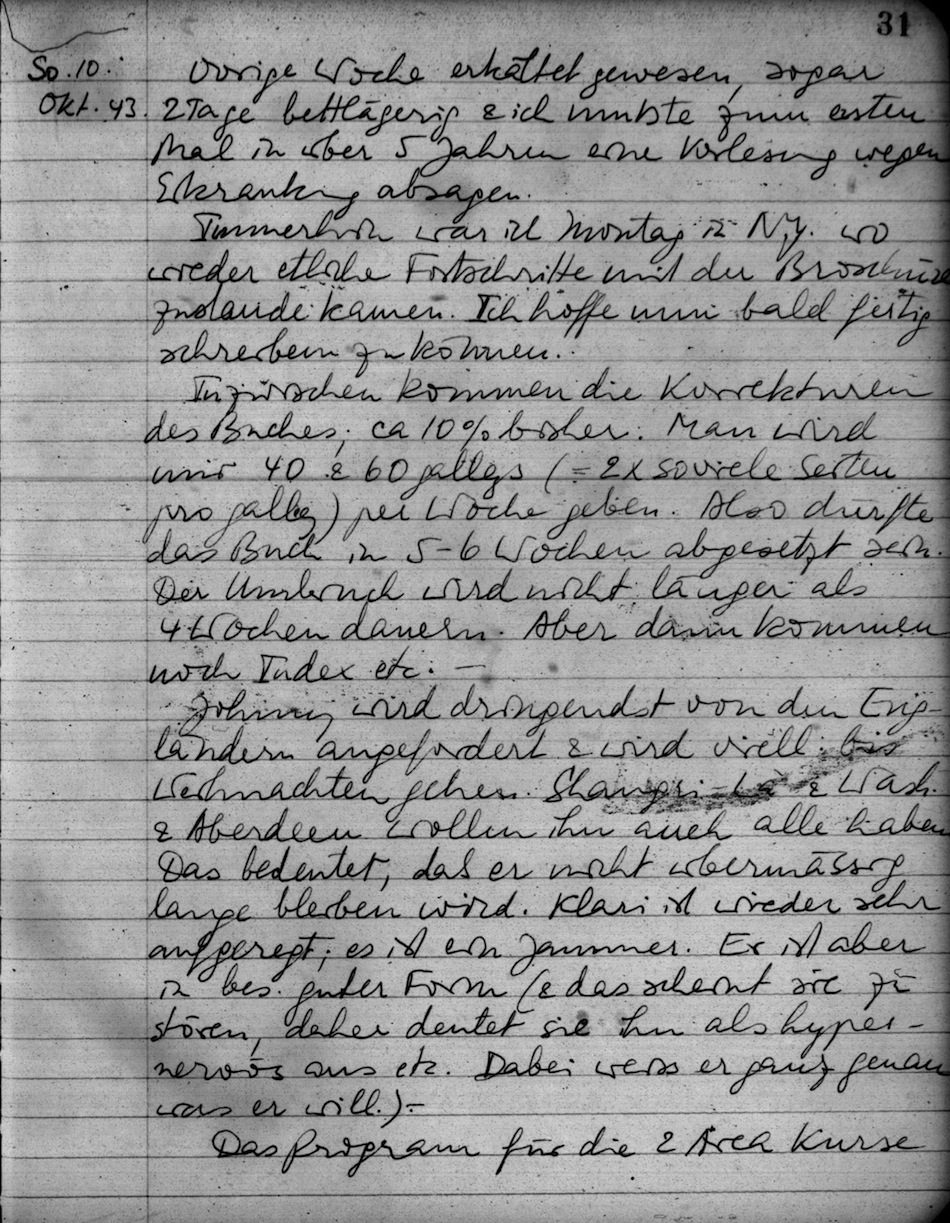 31
So. 10.
Okt. 43.
Vorige Woche erkältet gewesen, sogar
2 Tage bettlägerig & ich musste zum ersten
Mal in über 5 Jahren eine Vorlesung wegen
Erkrankung absagen.
Immerhin war ich Montag in N.Y. wo
wieder etliche Fortschritte mit der Broschüre
zustande kamen. Ich hoffe nun bald fertig
schreiben zu können.
Inzwischen kommen die Korrekturen
des Buches; ca 10% bisher. Man wird
mir 40 & 60 galleys (= 2x soviele Seiten
pro galley) per Woche geben. Also dürfte
das Buch in 5-6 Wochen abgesetzt sein.
Der Umbruch wird nicht länger als
4 Wochen dauern. Aber dann kommen
noch Index etc. —
Johnny wird dringendst von den Eng-
ländern angefordert & wird viell. bis
Weihnachten gehen. Shangri-La & Wash.
& Aberdeen wollen ihn auch alle haben
Das bedeutet, dass er nicht übermässig
lange bleiben wird. Klari ist wieder sehr
aufgeregt; es ist ein Jammer. Er ist aber
in bes. guter Form (& das scheint sie zu
stören, daher deutet sie ihn als hyper-
nervös aus etc. Dabei weiss er ganz genau
was er will.) –
Das Program für die 2 Area Kurse